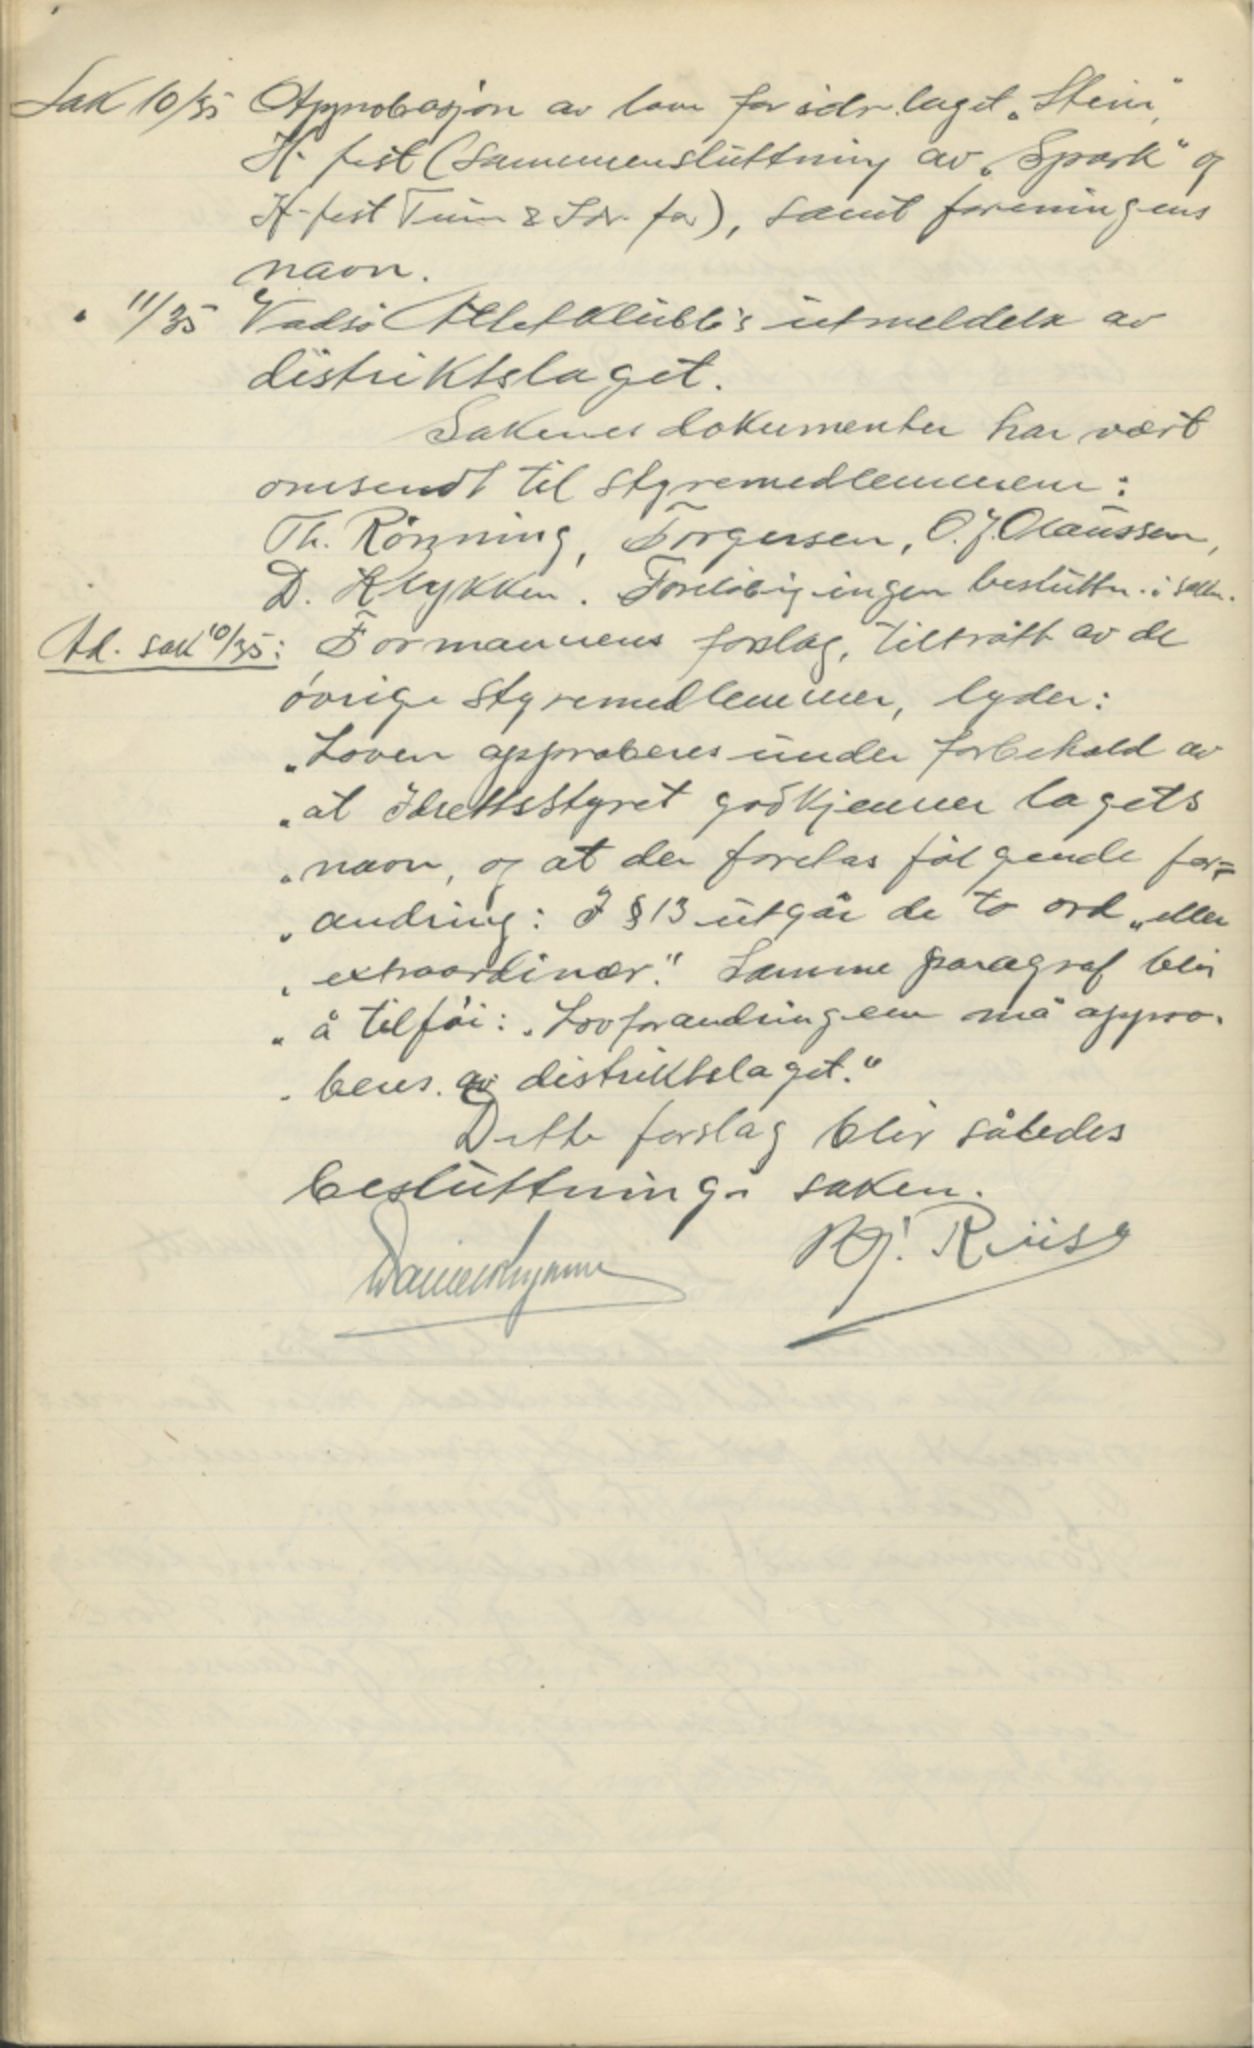 Sak 10/35 Approbasjon av lov for idr.laget „Stein",
H-fest (sammenslutning av „Spark" og
H-fest Turn & Idr. for), samt foreningens
navn.
" 11/35 Vadsö Atletklubb's utmeldelse av
distriktslaget.
Sakenes dokumenter har vært
omsendt til styremedlemmene:
Th. Rönning, Torgersen, O. J. Olaussen,
D. Klykken. Foreløbig ingen beslutn. i saken.
Ad. sak 10/35: Formannens forslag, tiltrådt av de
övrige styremedlemmer, lyder:
„Loven approberes under forbehold av
„at Idrettsstyret godkjenner lagets
„navn, og at der foretas fölgende for-
„andring: I § 13 utgår de to ord „eller
„extraordinær." Samme paragraf blir
„å tilföi: „Lovforandringene må appro-
„beres av distriktslaget."
Dette forslag blir således
beslutning i saken.
Bj. Riise